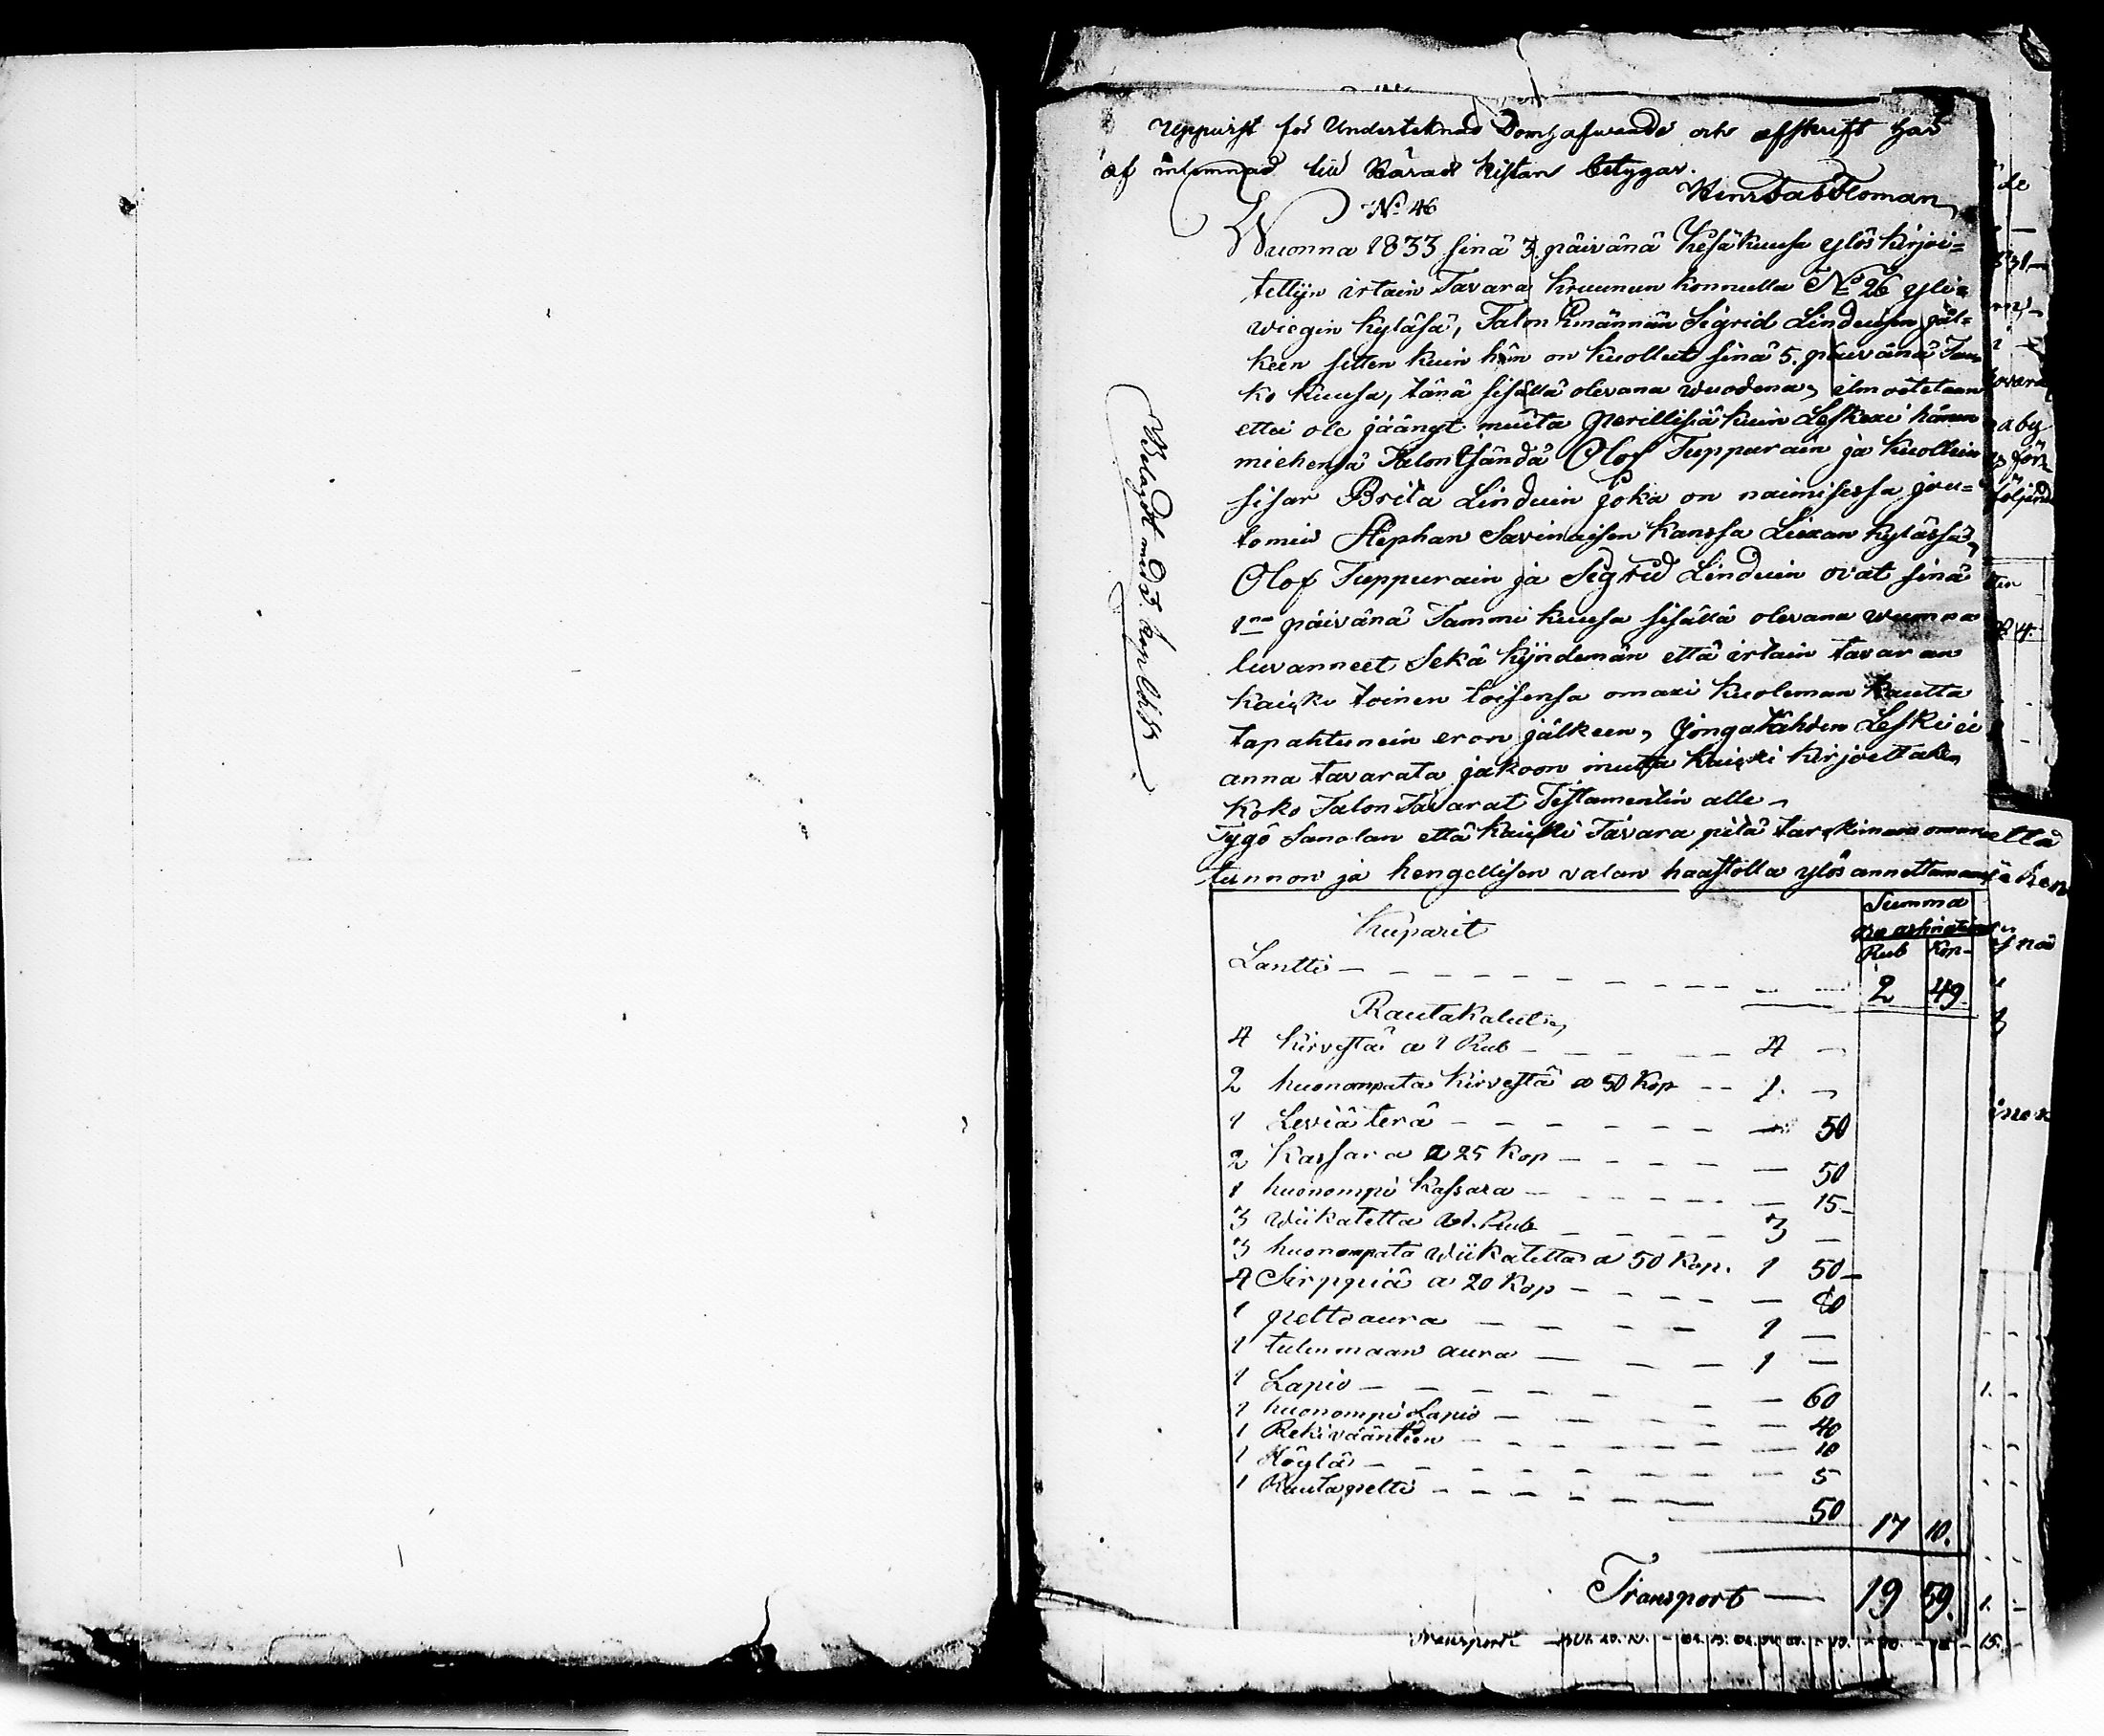 Uppwist för Underteknad Domhafwande och affskrift har
af inlemnad till Härads Kistan betygar.
No 46
Wuonna 1833 sinä 3. päivänä Kesäkuusa ylöskirjoi=
tettijn irtain Tavara Kruunun konnulla No 26 yli=
wiegin kyläsä, Talon Emännän Sigrid Linduisen jäl=
keen sitten kuin hän on kuollut sinä 5. päivänä Tou
ko kuusa, tänä sisällä olevana wuodena, ilmoitetaan
ettei ole jäänyt muita perillisiä kuin Leskexi hänen
miehensä Talon Isändä Olof Tuppurain ja kuolluin
sisar Brita Linduin joka on naimisessa jou=
tomies Stephan Savinaisen kanssa Liexan kylässä,
Olof Tuppurain ja Sigrid Linduin ovat sinä
1nä päivänä Tammi kuusa sisällä olevana wuonna
luvanneet Sekä kijndemän että irtain tavaran
kaiki toinen toisensa omaxi kuoleman kautta
tapahtunein eron jälkeen, Jongatähden Leski ei
anna tavarata jakoon mutta kaicki kirjoettahin
Koko Talon Tavarat Testamentin alle
Tygö Sanotan että kaicki Tavara pitä
tunnon ja hengellisen valan haastolla ylös annettaman
Belagdt med
Summa
Kuparit
Rub Kop
Lantti — 2 49
Rautakalut
4 kirvestä a 1 Rub — 4 —
2 huonompata kirvestä a 50 Kop — 1. —
1 Leviä terä — 50
2 Kassara a 25 Kop — 50
1 huonompi Kassara — 15
3 Wiikatetta a 1. Rub — 3 —
3 huonompata Wiikatetta a 50 Kop. 1 50
4 Sirppiä a 20 Kop — 80
1 peltoaura — 1 —
1 tulenmaan aura — 1 —
1 Lapio — 60
1 huonompi Lapio — 40
1 Rekivääntiin — 10
1 Höylä — 5
1 Rautapelti — 50
17 10.
Transport — 19 59.
Transport